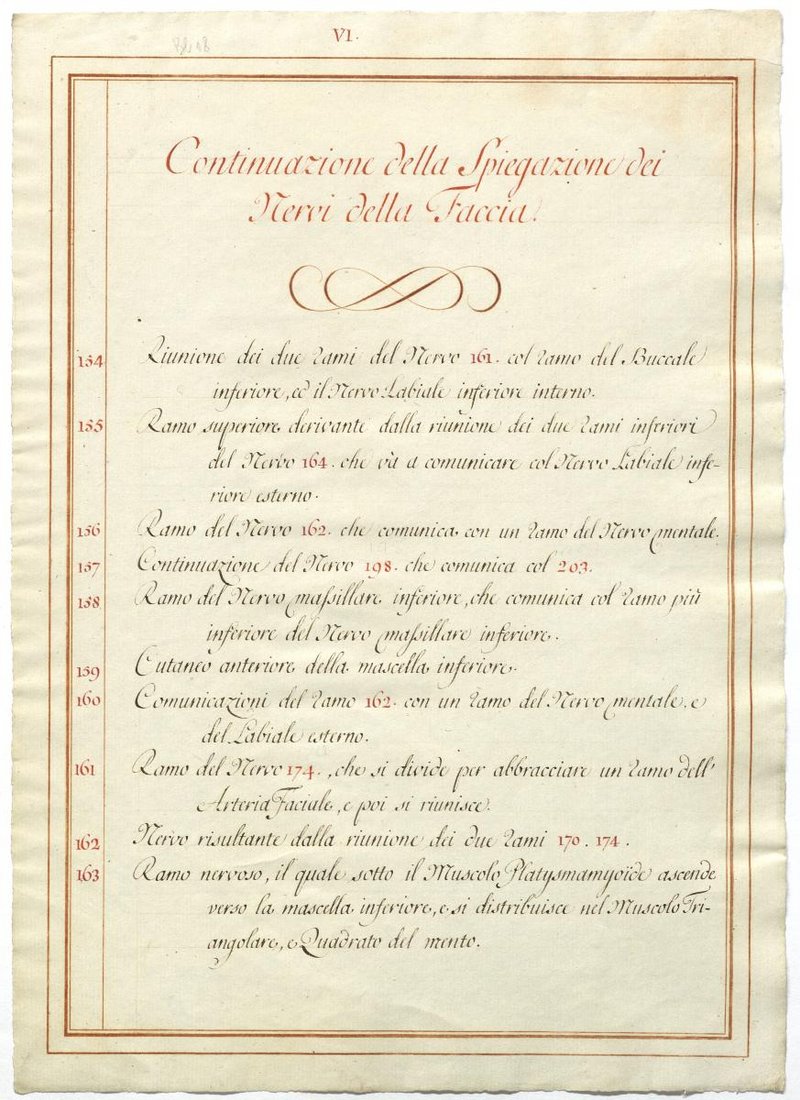 VI.
Continuazione della Spiegazione dei
Nervi della Faccia.
154 Riunione dei due rami del Nervo 161. col ramo del Buccale
inferiore, ed il Nervo Labiale inferiore interno.
155 Ramo superiore derivante dalla riunione dei due rami inferiori
del Nervo 164. che và a comunicare col Nervo Labiale infe-
riore esterno.
156 Ramo del Nervo 162. che comunica con un ramo del Nervo mentale.
157 Continuazione del Nervo 198. che comunica col 203.
158 Ramo del Nervo maſsillare inferiore, che comunica col ramo più
inferiore del Nervo maſsillare inferiore.
159 Cutaneo anteriore della mascella inferiore.
160 Comunicazioni del ramo 162. con un ramo del Nervo mentale. e
del Labiale esterno.
161 Ramo del Nervo 174., che si divide per abbracciare un ramo dell'
Arteria Faciale, e poi si riunisce.
162 Nervo risultante dalla riunione dei due rami 170. 174.
163 Ramo nervoso, il quale sotto il Muscolo Platysmamyoïde ascende
verso la mascella inferiore, e si distribuisce nel Muscolo Tri-
angolare, e Quadrato del mento.